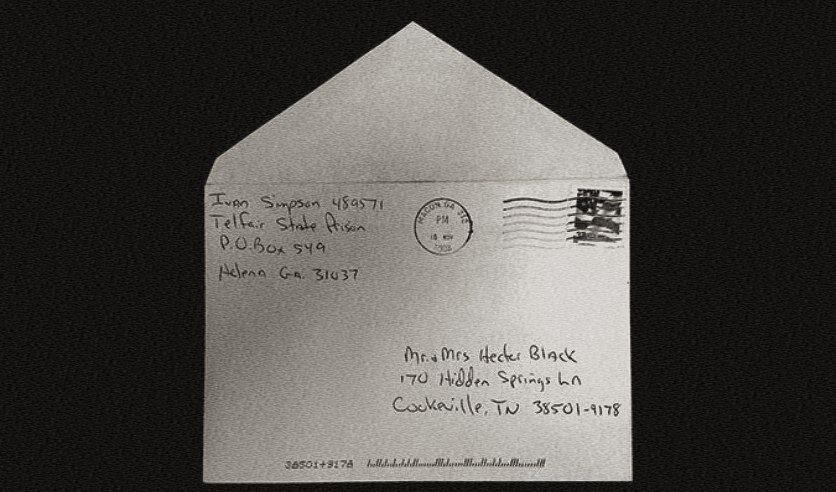 Ivan Simpson 489571
Telfair State Prison
P.O. Box 549
Helena Ga. 31037
MACON GA 312
PM
Mr. & Mrs Hector Black
170 Hidden Springs Ln
Cookeville, TN 38501-9178
38501+9178